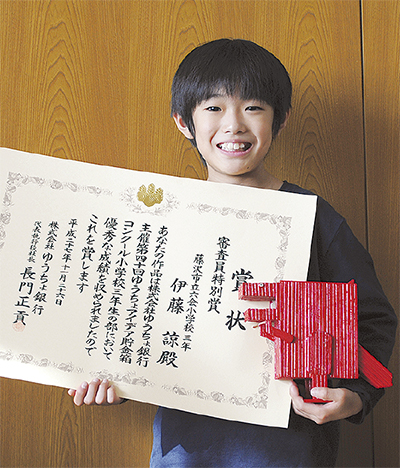 賞状
審査員特別賞
藤沢市立六会小学校 三年
伊藤 諒 殿
あなたの作品は株式会社ゆうちょ銀行
主催第四十回ゆうちょアイデア貯金箱
コンクール小学校三年生の部において
優秀な成績を収められましたので
これを賞します
平成二十七年十一月二十六日
株式会社ゆうちょ銀行
代表執行役社長 長門正貢